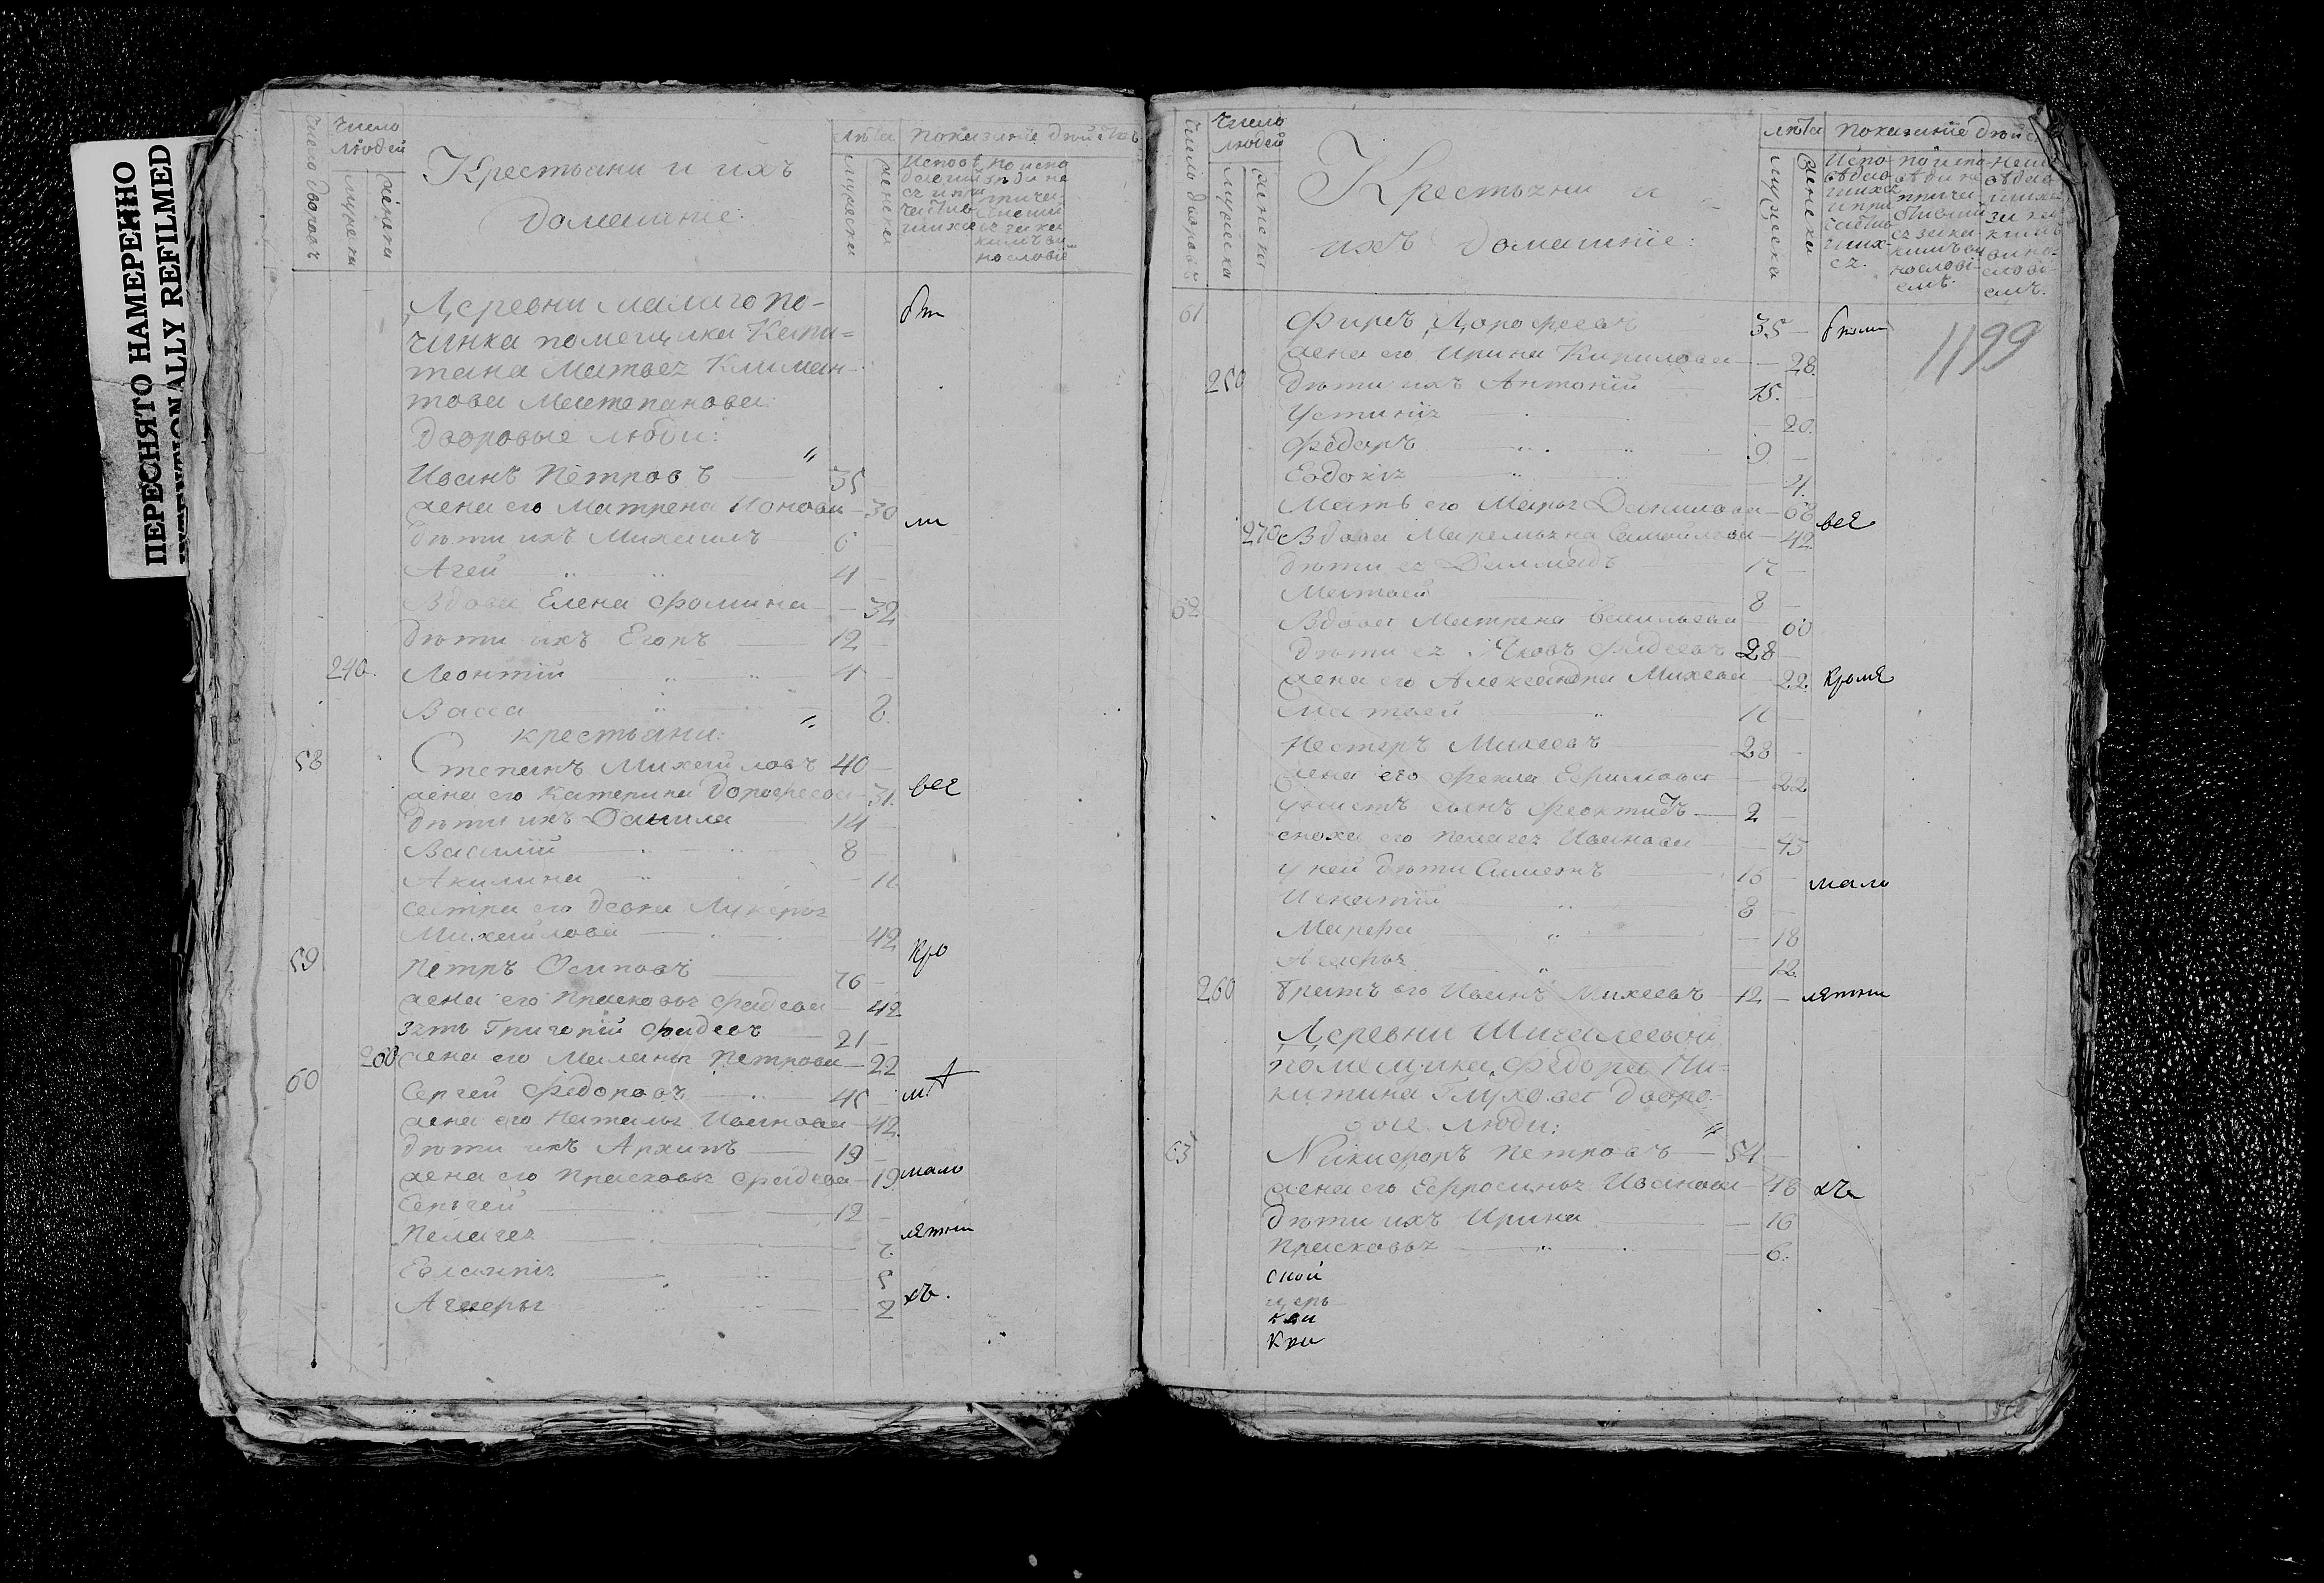 ПЕРЕСНЯТО НАМЕРЕННО
INTENTIONALLY REFILMED
число дворовъ
число людей
мужеска
женска
Крестьяни и ихъ
домашніе:
лѣта
мужеска
женска
показаніе дѣйствъ
Деревни малаго по-
чинка помещика Капи-
тана Матвея Климан-
това
дворовые люди:
Иванъ Петровъ 35
жена его Матрена Ионова 30
дѣти ихъ Михаилъ 6
Агей 4
Вдова Елена Фомина 32
дѣти ихъ Егоръ 12
240. Леонтій 4
Васса 8
крестьяни:
58 Степанъ Михайловъ 40
жена его Катерина Дорофеева 31
дѣти ихъ Данила 14
Василій 8
Акилина 11
сестра его девка Лукерья
Михайлова 42
59 Петръ Осиповъ 76
жена его Прасковья Фадеева 42
зять Григорій Фадеевъ 21
200 жена его Маланья Петрова 22
60 Сергей Федоровъ 45
жена его Наталья Иванова 42
дѣти ихъ Архипъ 19
жена его Прасковья Фадеева 19
Сергей 12
Пелагея 7
Евлампія 5
2
вт
ли
все
кро
мѣ
мало
летни
хъ.
число дворовъ
число людей
мужеска
женска
Крестьяни и
ихъ домашніе:
лѣта
мужеска
женска
показаніе дѣйст
1199
61 Фирсъ Дорофеевъ 35
жена его Ирина Кирилова 28
250 дѣти ихъ Антоній 15
Устинія 20
Федоръ 9
Евдокія 4
Мать его Марья Данилова 68
270 Вдова Маремьяна Самойлова 42
дѣти ея Диамидъ 17
Матвей 8
62 Вдова Матрена Васильева 60
дѣти ея Яковъ Фадеевъ 28
жена его Александра Михеева 22
Матвей 11
Нестеръ Михеевъ 28
жена его Фекла Ефимова 22
у нихъ сынъ Феоктистъ 2
сноха его Пелагея Иванова 45
у ней дѣти Симеонъ 16
Игнатій 8
Марфа 18
12
260 братъ его Иванъ Михеевъ 12
Деревни Шигалеевой
помещика Федора Ни-
китина Глухова дворо-
вые люди:
63 Никифоръ Петровъ 54
жена его Ефросинья Иванова 48
дѣти ихъ Ирина 16
Прасковья 6
все
кроме
мало
летни
хъ
ской
церь
кви
кри